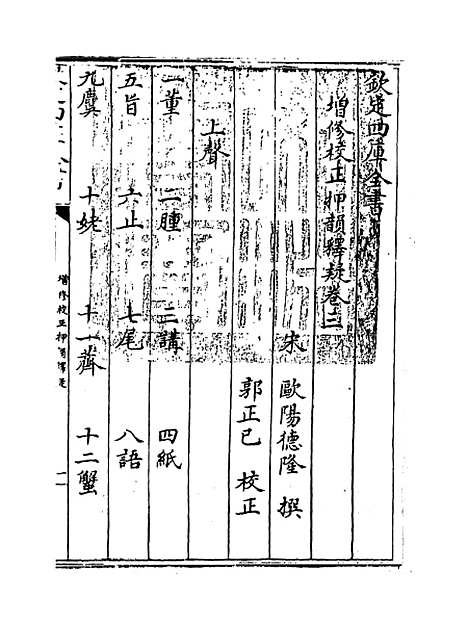 欽定四庫全書
增修校正押韻釋疑卷三
宋 歐陽德隆 撰
郭正己 校正
上聲
一董 二腫 三講 四紙
五旨 六止 七尾 八語
九麌 十姥 十一薺 十二蟹
增修校正押韻釋疑